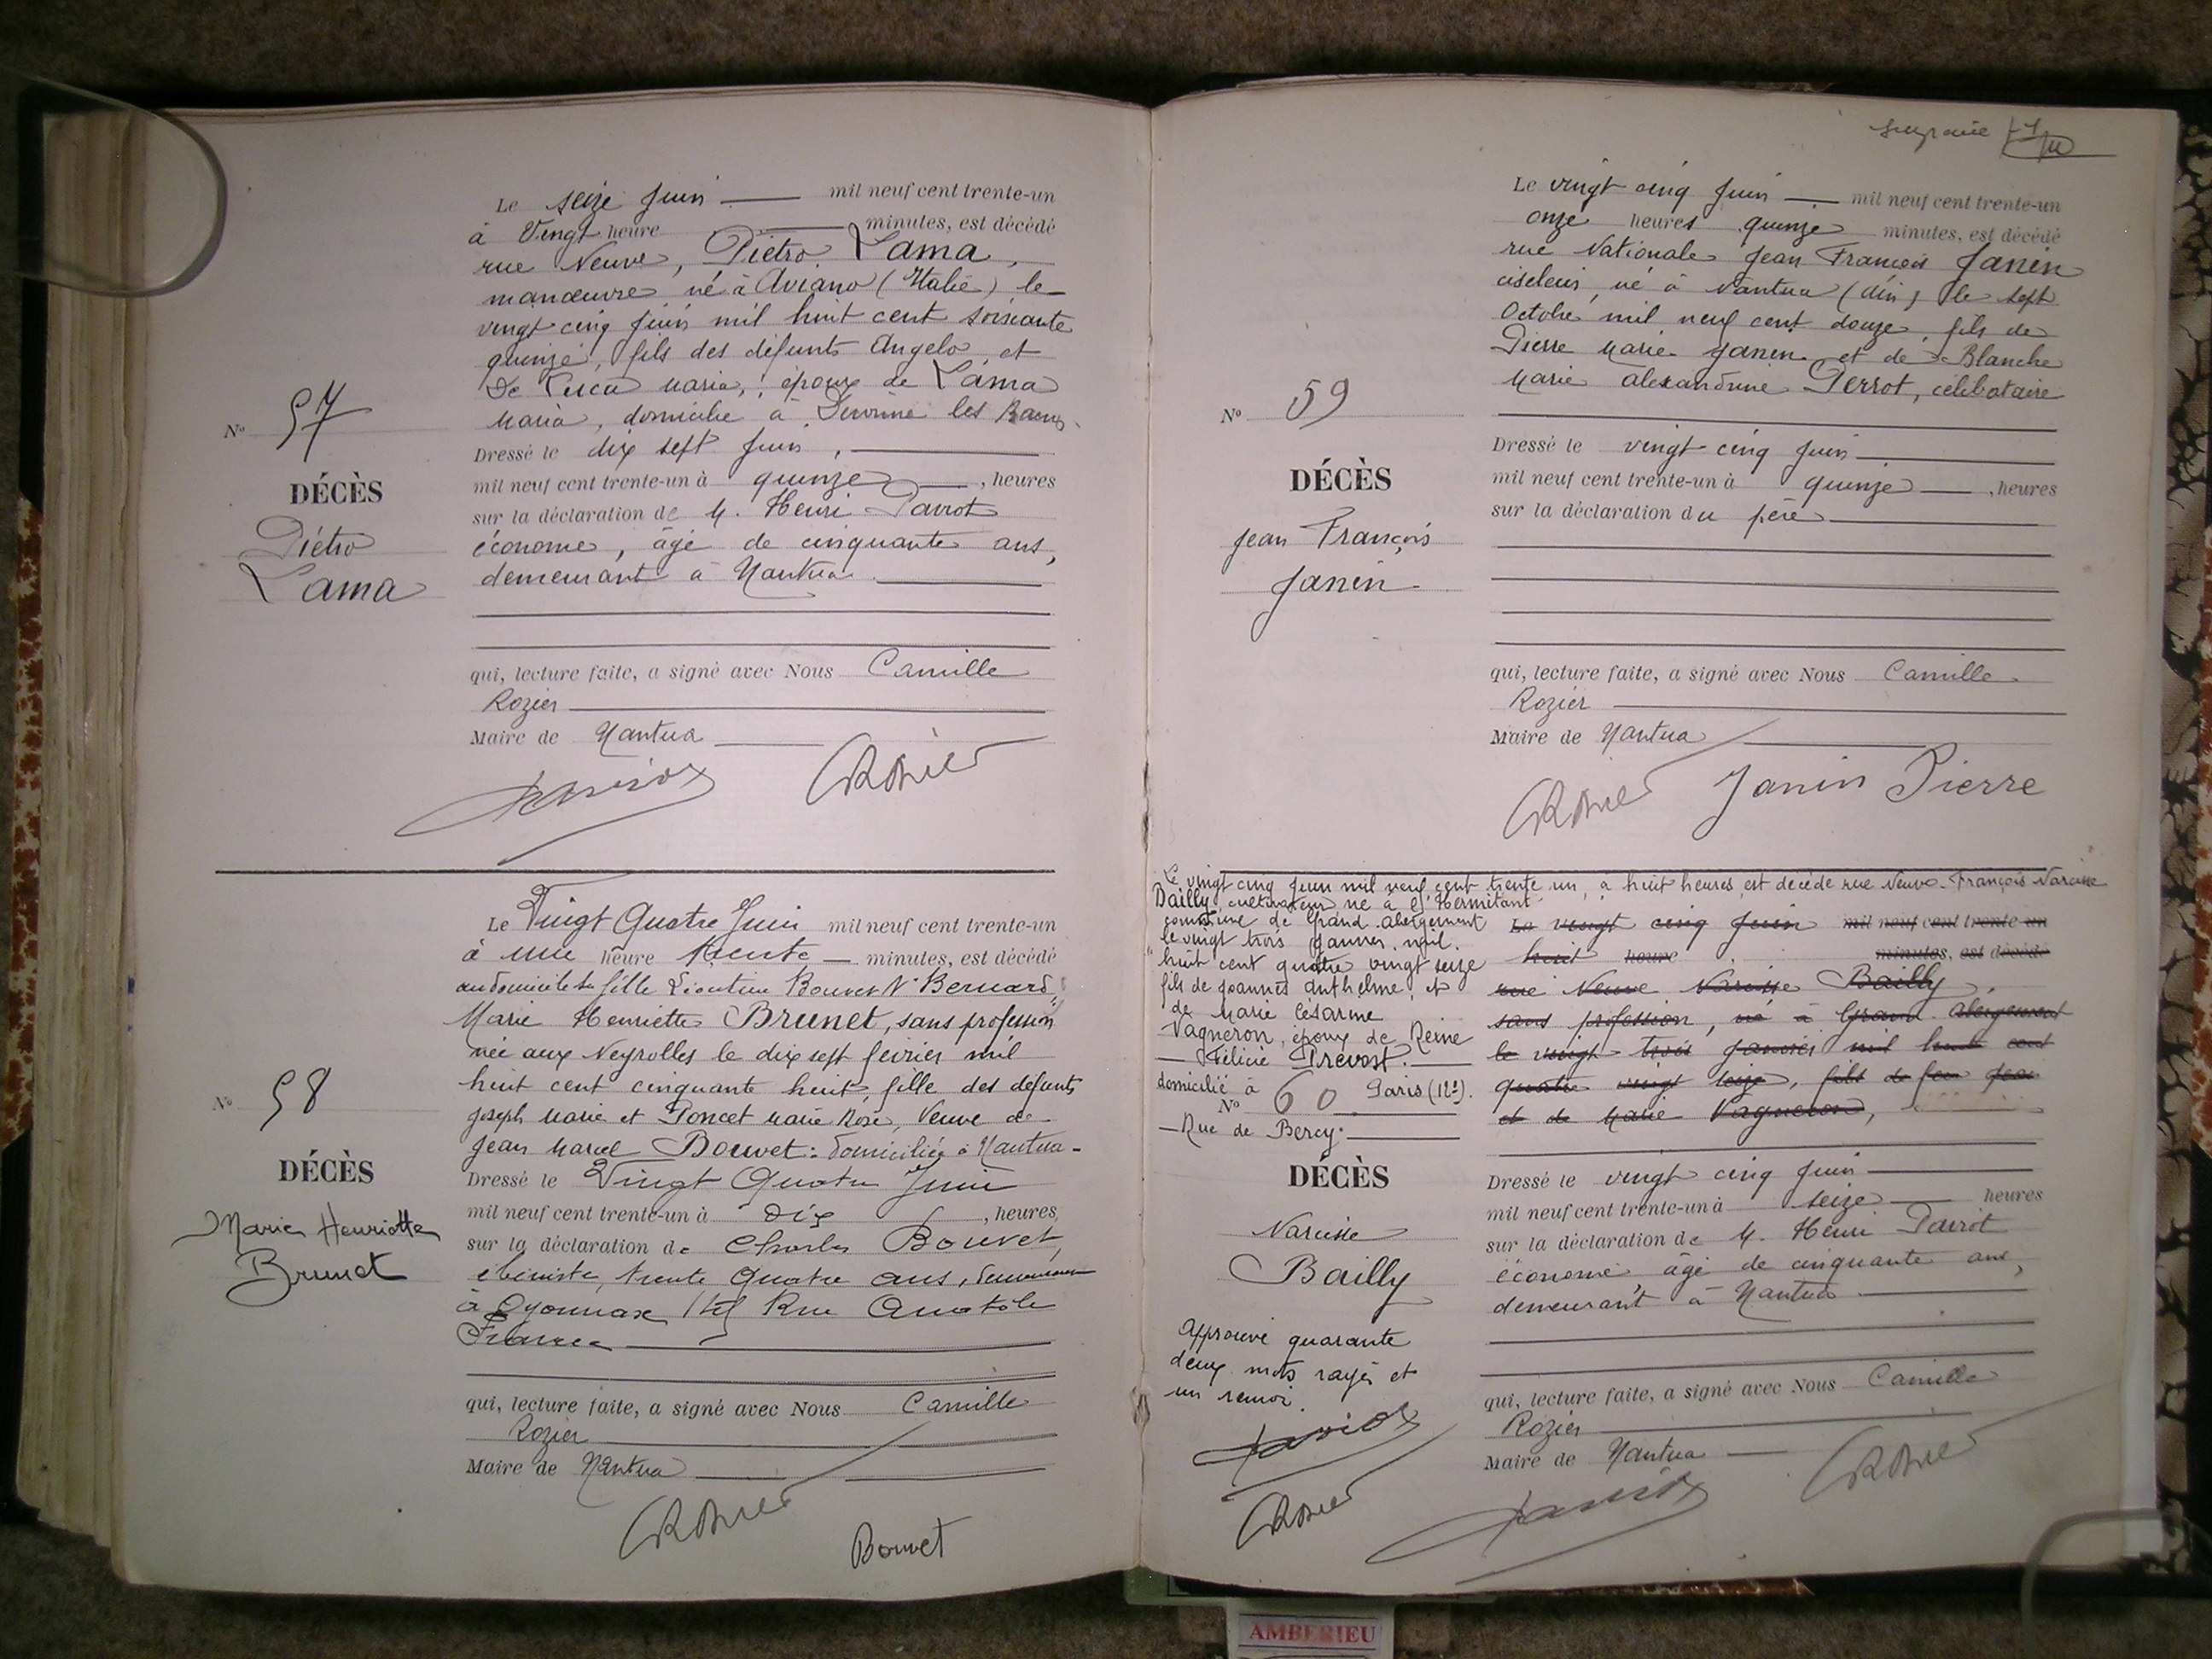 Le seize Juin mil neuf cent trente-un
à Vingt heure minutes, est décédé
rue Neuve, Piétro Lama,
manœuvre né à Aviano (Italie) le
vingt cinq Juin mil huit cent soixante
quinze, fils des défunts Angelo et
De Luca Maria, époux de Lama
Maria, domicilié à Divonne les Bains.
N° 57
DÉCÈS
Piétro
Lama
Dressé le dix sept Juin,
mil neuf cent trente-un à quinze, heures
sur la déclaration de M. Henri Pavrot
économe, âgé de cinquante ans,
demeurant à Nantua
qui, lecture faite, a signé avec Nous Camille
Rozier
Maire de Nantua
Le Vingt Quatre Juin mil neuf cent trente-un
à une heure trente minutes, est décédé
au domicile de sa fille Léontine Bouvet Ve Bernard
Marie Henriette Brunet, sans profession
née aux Neyrolles le dix sept février mil
huit cent cinquante huit, fille des défunts
Joseph Marie et Poncet Marie Rose, Veuve de
Jean Marcel Bouvet : domiciliée à Nantua -
N° 58
DÉCÈS
Marie Henriette
Brunet
Dressé le Vingt Quatre Juin
mil neuf cent trente-un à Dix, heures,
sur la déclaration de Charles Bouvet,
ébéniste, trente quatre ans, demeurant
à Oyonnax Rue Anatole
France
qui, lecture faite, a signé avec Nous Camille
Rozier
Maire de Nantua
Bouvet
Le vingt cinq Juin mil neuf cent trente-un
onze heures quinze minutes, est décédé
rue Nationale Jean François Janin
ciseleur, né à Nantua (Ain) le sept
Octobre mil neuf cent douze, fils de
Pierre Marie Janin et de Blanche
Marie Alexandrine Perrot, célibataire
N° 59
DÉCÈS
Jean François
Janin
Dressé le vingt cinq Juin
mil neuf cent trente-un à quinze, heures
sur la déclaration du père
qui, lecture faite, a signé avec Nous Camille
Rozier
Maire de Nantua
Janin Pierre
Le vingt cinq Juin mil neuf cent trente un, à huit heures, est décédé rue Neuve François Narcisse
Bailly, cultivateur né à l'Hermitant
commune de Grand Abergement
le vingt trois Janvier mil
huit cent quatre vingt seize
fils de Joannès Anthelme, et
de Marie Césarine
Vagneron, époux de Reine
Félicie Prévost.
domicilié à Paris (12e).
N° 60
Rue de Bercy.
Le vingt cinq Juin mil neuf cent trente un
huit heure minutes, est décédé
rue Neuve Narcisse Bailly,
sans profession, né à Grand Abergement
le vingt trois Janvier mil huit cent
quatre vingt seize, fils de feu Jean
et de Marie Vagneron,
DÉCÈS
Narcisse
Bailly
Approuvé quarante
deux mots rayés et
un renvoi.
Dressé le vingt cinq Juin
mil neuf cent trente-un à seize heures
sur la déclaration de M. Henri Pavrot
économe âgé de cinquante ans,
demeurant à Nantua
qui, lecture faite, a signé avec Nous Camille
Rozier
Maire de Nantua
AMBERIEU